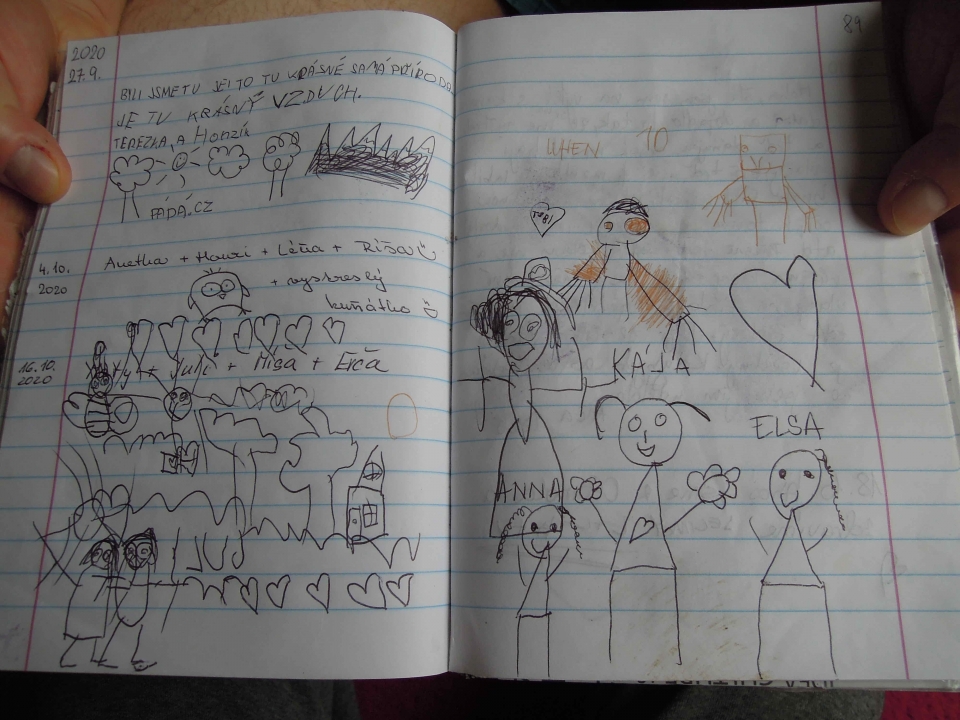 2020
27.9.
BILI JSME TU JEI TO TU KRÁSNÉ SAMÁ PŘÍRODA.
JE TU KRÁSNÝ VZDUCH.
TEREZKA A Honzík
FÁDÁ.CZ
4.10.
2020
Anetka + Honzi + Léňa + Ríša
+ nystreslý
kuňátko
16.10.
2020
+ Juli + Míša + Erča
89
UHEN 10
KÁJA
ELSA
ANNA